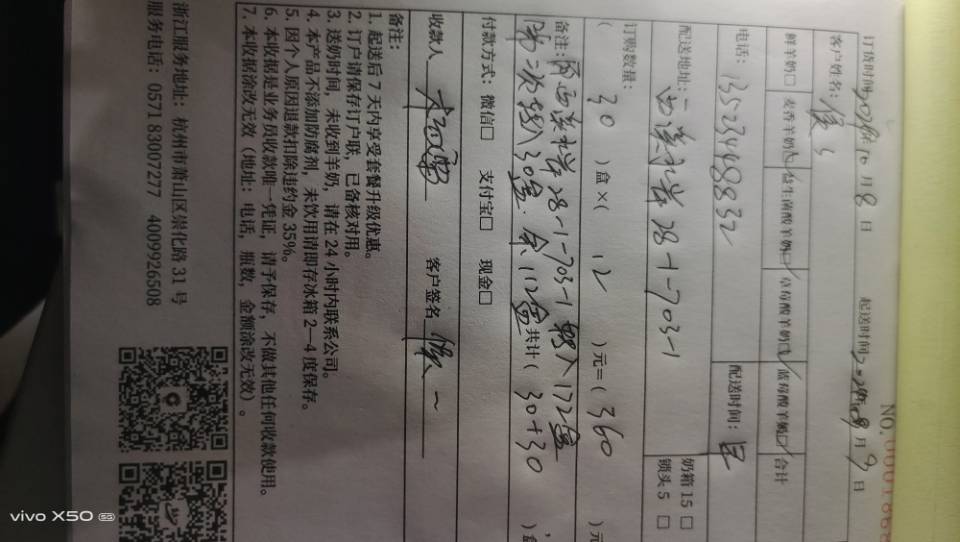 NO.
订货时间 月8日 起送时间 月9日
客户姓名:
鲜羊奶□ 麦香羊奶 益生菌酸羊奶 草莓酸羊奶 蓝莓酸羊奶 合计
电话:13523448832 配送时间:
配送地址: 28-1-703-1 奶箱15□ 锁头5□
订购数量:
(30)盒×(12)元=(360)元
备注: 28-1-703-1 转入172盒
第二次转入30盒.余112盒 共计(30+30)
付款方式:微信□ 支付宝□ 现金□
收款人 客户签名
备注:
1. 起送后7天内享受套餐升级优惠。
2. 订户请保存订户联,已备核对用。
3. 送奶时间,未收到羊奶,请在24小时内联系公司。
4. 本产品不添加防腐剂,未饮用请即存冰箱2—4度保存。
5. 因个人原因退款扣除违约金35%。
6. 本收据是业务员收款唯一凭证,请予保存,不做其他任何收款使用。
7. 本收据涂改无效(地址:电话,瓶数,金额涂改无效)。
浙江服务地址:杭州市萧山区崇化路31号
服务电话:0571 83007277 4009926508
vivo X50 5G